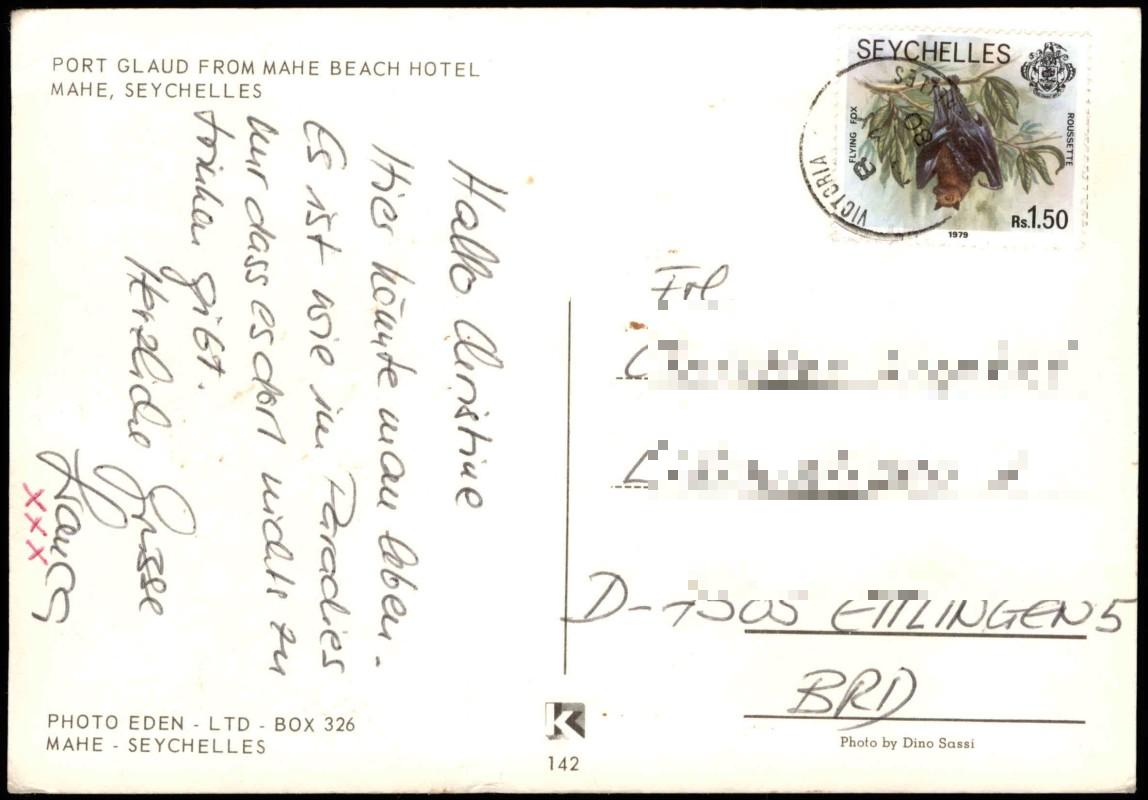 PORT GLAUD FROM MAHE BEACH HOTEL
MAHE, SEYCHELLES
Hallo Christine
Hier könnte man leben.
Es ist wie im Paradies
nur dass es dort nichts zu
trinken gibt.
Herzliche
Grüsse
xxx
PHOTO EDEN - LTD - BOX 326
MAHE - SEYCHELLES
K
142
SEYCHELLES
FLYING FOX
ROUSSETTE
Rs.1.50
1979
VICTORIA
80
Frl
D-7505 ETTLINGEN 5
BRD
Photo by Dino Sassi